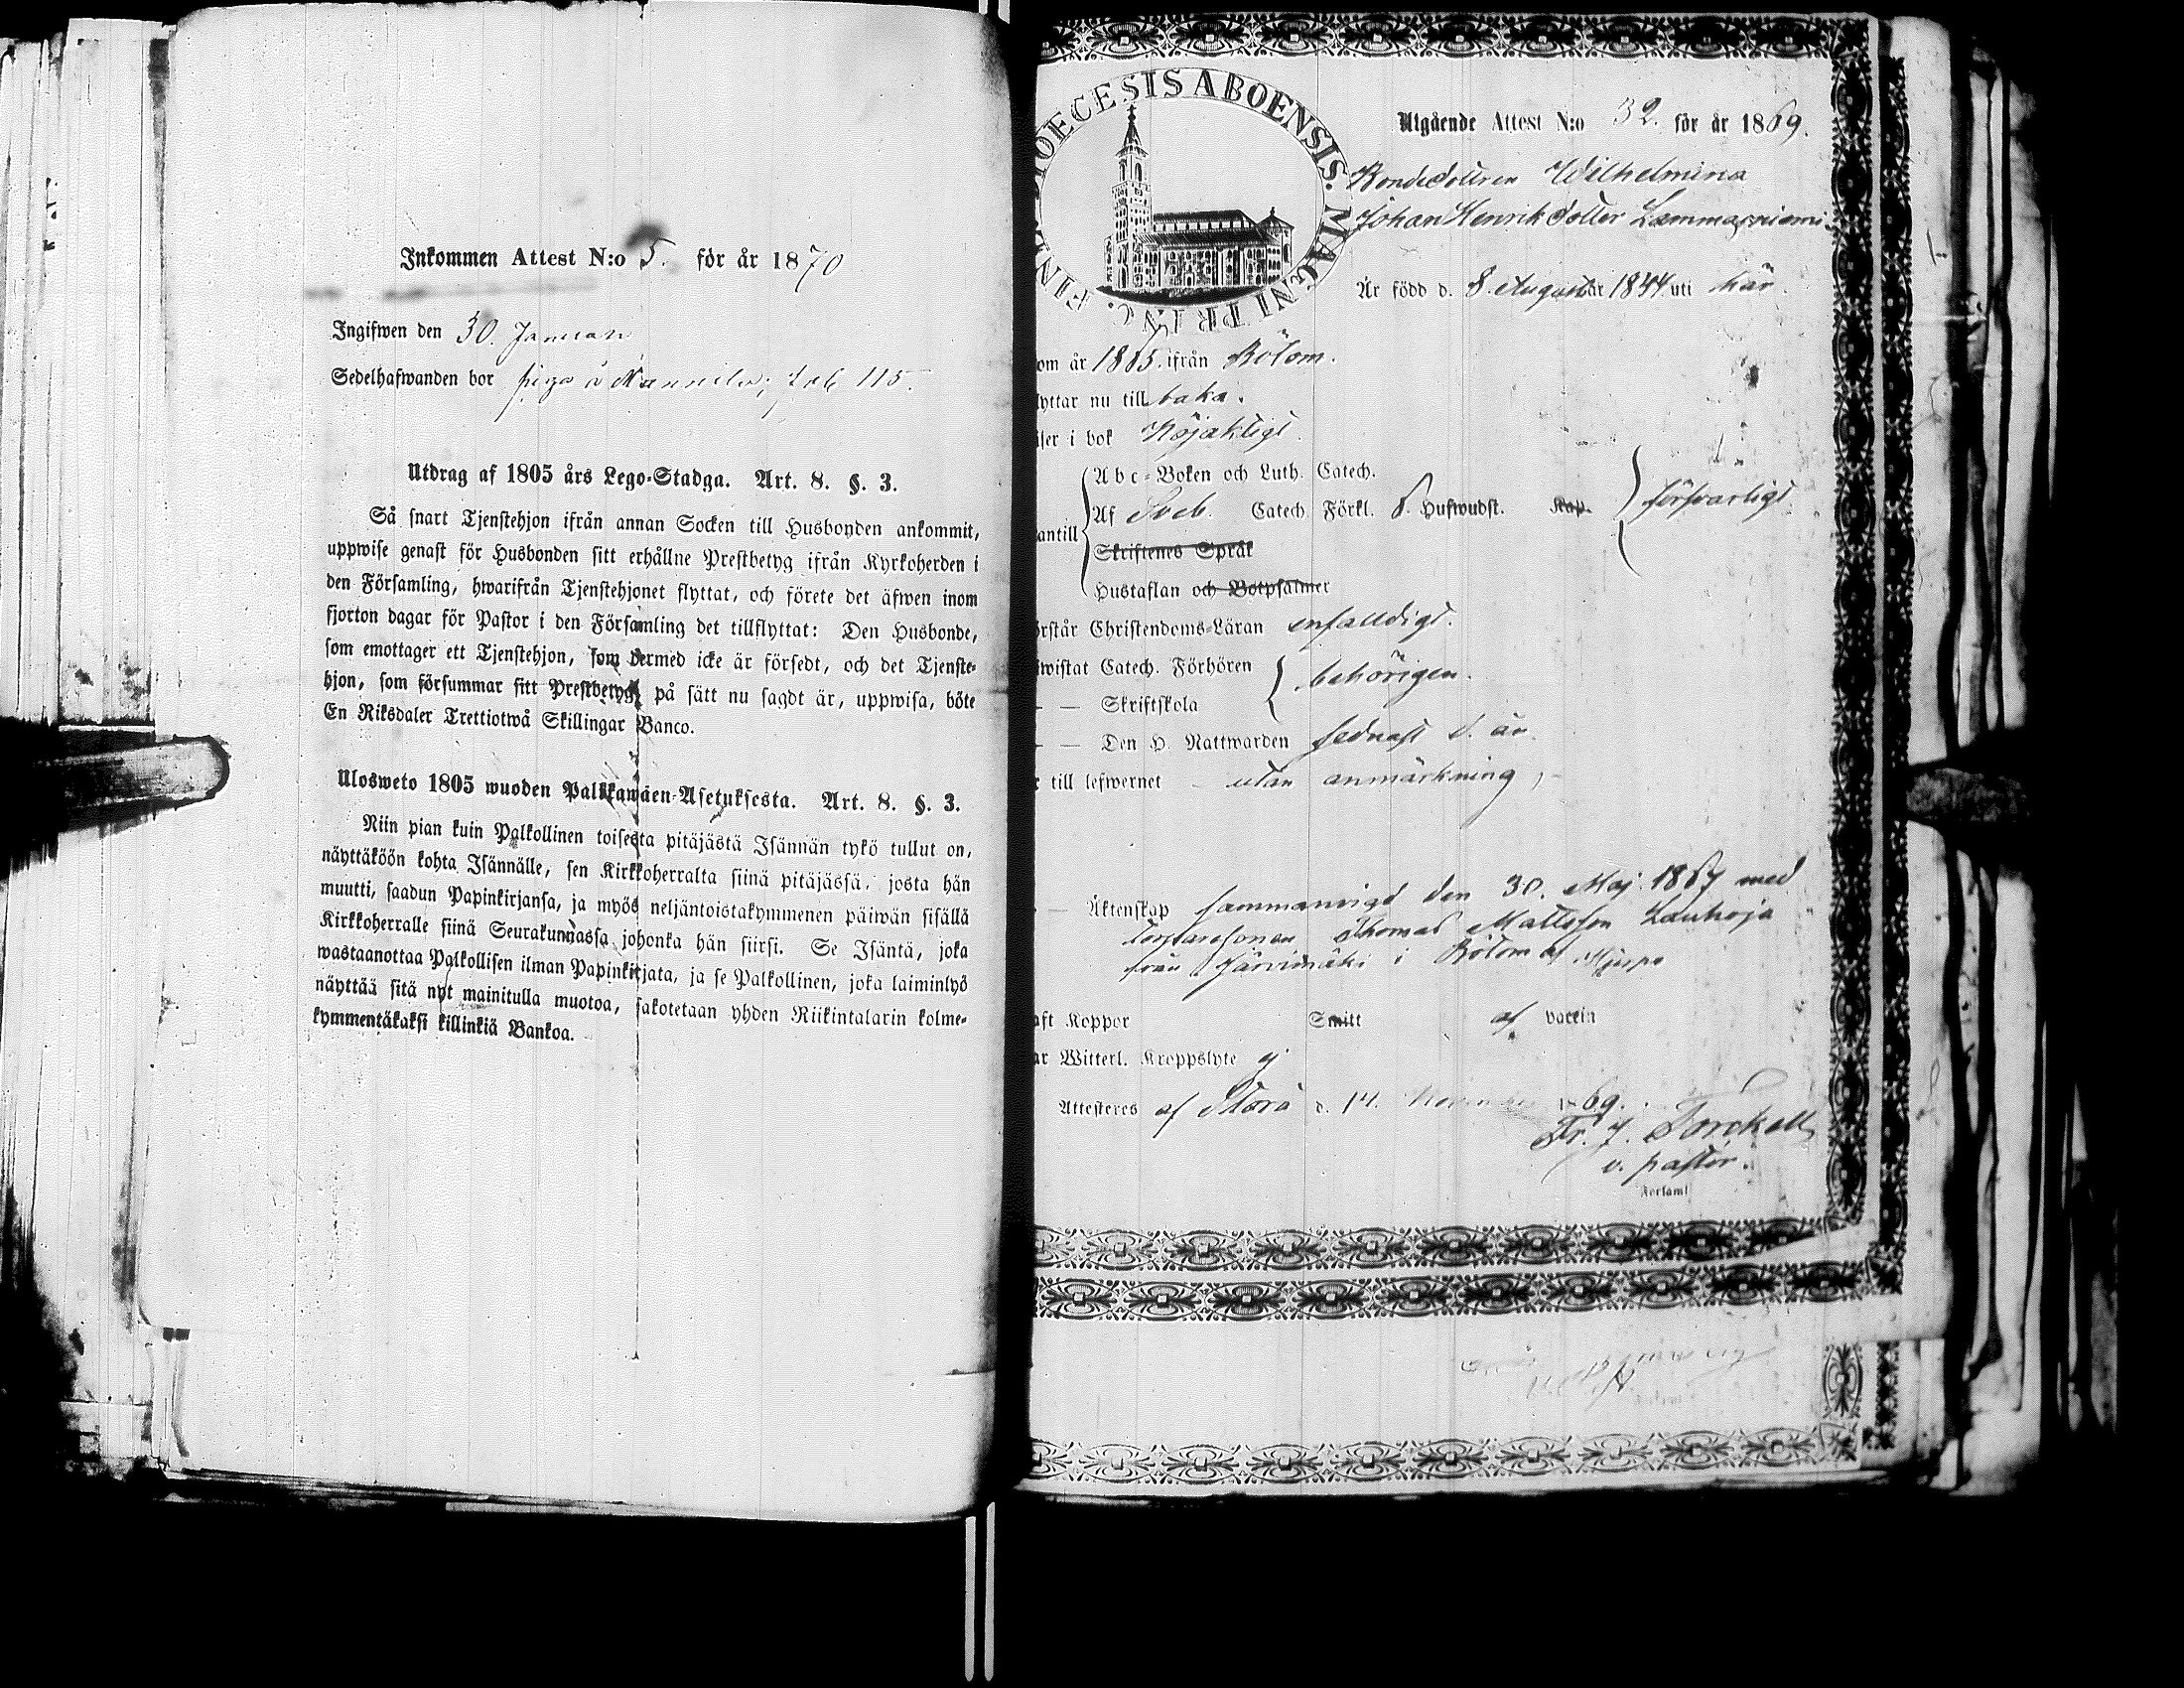 Inkommen Attest N:o 5. för år 1870
Ingifwen den 30. Januari
Sedelhafwanden bor piga å Nannila; pag 115.
Utdrag af 1805 års Lego-Stadga. Art. 8. §. 3.
Så snart Tjenstehjon ifrån annan Socken till Husbonden ankommit,
uppwise genast för Husbonden sitt erhållne Prestbetyg ifrån Kyrkoherden i
den Församling, hwarifrån Tjenstehjonet flyttat, och förete det äfwen inom
fjorton dagar för Pastor i den Församling det tillflyttat: Den Husbonde,
som emottager ett Tjenstehjon, som dermed icke är försedt, och det Tjenste-
hjon, som försummar sitt Prestbetyg, på sätt nu sagdt är, uppwisa, böte
En Riksdaler Trettiotwå Skillingar Banco.
Ulosweto 1805 wuoden Palkkawäen-Asetuksesta. Art. 8. §. 3.
Niin pian kuin Palkollinen toisesta pitäjästä Isännän tykö tullut on,
näyttäköön kohta Isännälle, sen Kirkkoherralta siinä pitäjässä, josta hän
muutti, saadun Papinkirjansa, ja myös neljäntoistakymmenen päiwän sisällä
Kirkkoherralle siinä Seurakunnassa johonka hän siirsi. Se Isäntä, joka
wastaanottaa Palkollisen ilman Papinkirjata, ja se Palkollinen, joka laiminlyö
näyttää sitä nyt mainitulla muotoa, sakotetaan yhden Riikintalarin kolme-
kymmentäkaksi killinkiä Bankoa.
DIOECESIS ABOENSIS. MAGNI PRINC. FINL.
Utgående Attest N:o 32. för år 1869.
Bondedottren Wilhelmina
Johan Henriksdotter Lammasniemi
Är född d. 8. Augusti år 1844 uti här.
om år 1865. ifrån Bötom.
lyttar nu till baka.
ser i bok Nöjaktigt.
Abc-Boken och Luth. Catech.
antill Af Sveb. Catech. Förkl. 8. Hufwudst. Kap. försvarligt
Skriftenes Språk
Hustaflan och Botpsalmer
örstår Christendoms-Läran enfalldigt.
wistat Catech. Förhören behörigen.
— — Skriftskola
— — Den H. Nattwarden sednast d. år
r till lefwernet utan anmärkning,
— Äktenskap sammanvigd den 30. Maj 1869 med
torparesonen Thomas Mattsson Lauhoja
från Järvimäki i Bötom af Myrpo
aft Koppor Smitt af vaccin
ar Witterl. Kroppslyte ej
Attesteres af Storå d. 14. November 1869.
Fr. J. Forckell
v. pastor.
Forsaml